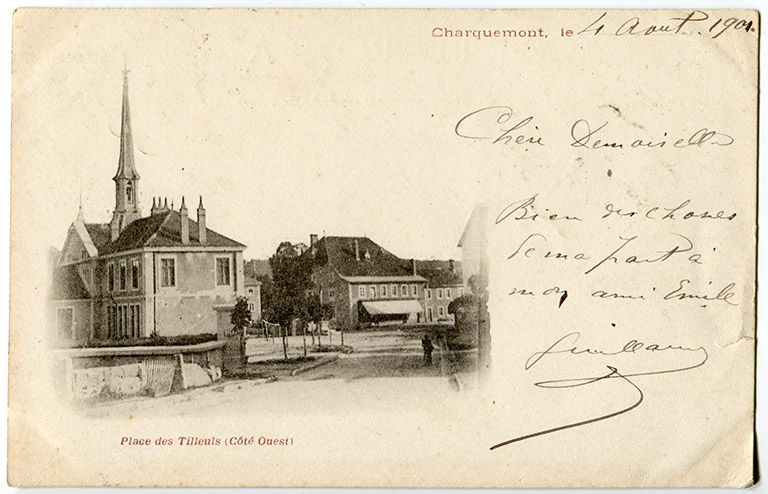 Charquemont, le 4 Août 1901.
Chère Demoiselle
Bien des choses
de ma part à
mon ami Emile
Guillaume
Place des Tilleuls (Côté Ouest)